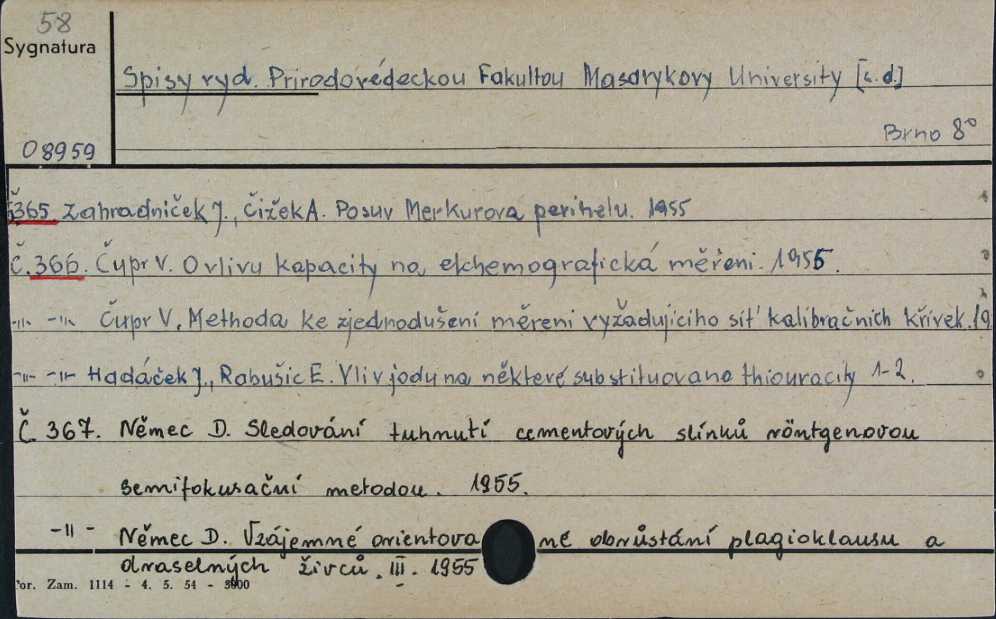 58
Sygnatura
Spisy vyd. Prirodovédeckou Fakultou Masarykovy University [c.d.]
Brno 8°
08959
Č365 Zahradniček J., Čižek A. Posuv Merkurova perihelu. 1955
Č.366. Čupr V. O vlivu kapacity na elchemografická měřeni. 1955.
-"- -"- Čupr V. Methoda ke zjednodušení měreni vyžadujiciho siť kalibračnich křívek. 19
-"- -"- Hadáček J., Rabušic E. Vliv jodu na některé substituovana thiouracily 1-2.
Č. 367. Němec D. Sledování tuhnutí cementových slínků röntgenovou
semifokusační metodou. 1955.
-"- Němec D. Vzájemné orientované obrůstání plagioklasu a
draselných živců. III. 1955
Por. Zam. 1114 - 4. 5. 54 - 5000